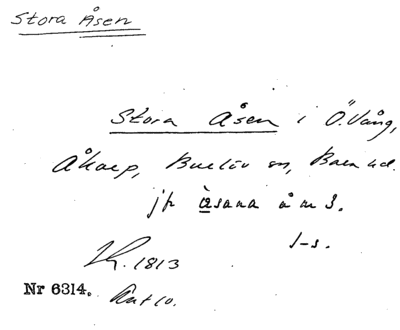 Stora Åsen
Stora Åsen i Ö. Vång,
Åkarp, Burlöv sn, Bara hd.
jfr åsana å m 3.
1813
Nr 6314.